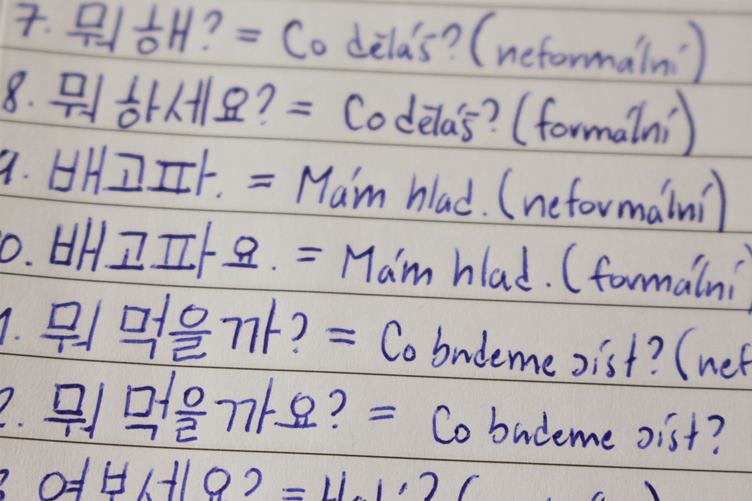 7. 뭐 해? = Co děláš? (neformální)
8. 뭐 하세요? = Co děláš? (formální)
9. 배고파. = Mám hlad. (neformální)
0. 배고파요. = Mám hlad. (formální)
1. 뭐 먹을까? = Co budeme jíst? (nef
2. 뭐 먹을까요? = Co budeme jíst?
3. 여보세요? =